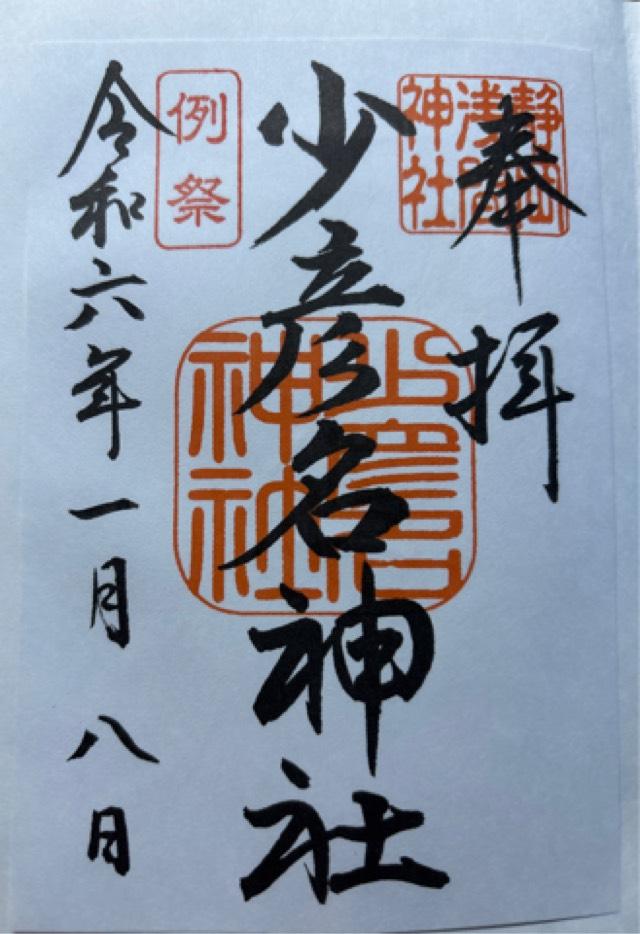 奉拝
静岡
浅間
神社
少彦名神社
少彦名
神社
例祭
令和六年一月八日